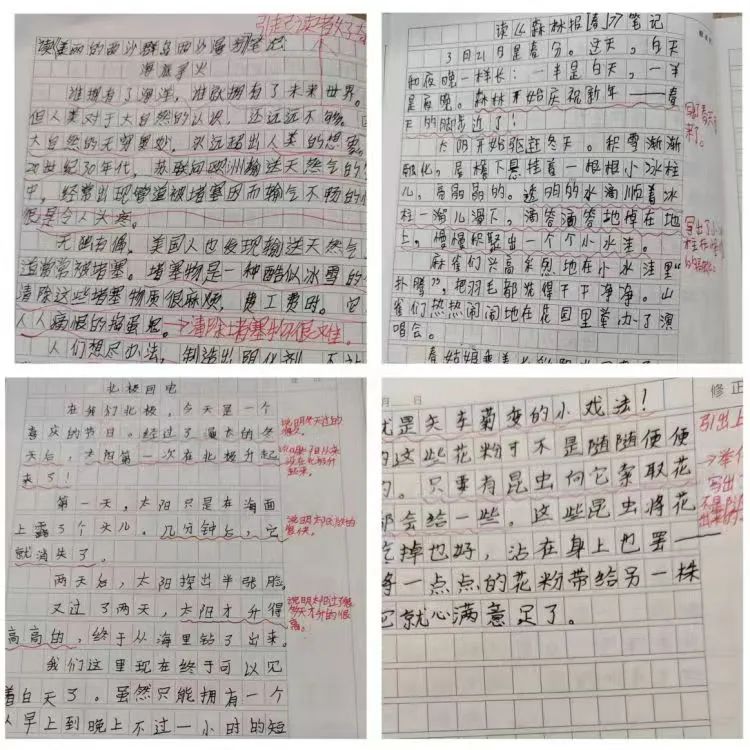 引起了读者
读《美丽的西沙群岛西沙漫》笔记
海底拿火
谁拥有了海洋，谁就拥有了未来世界。
但人类对于大自然的认识，还远远不够。
大自然的无穷奥妙，永远超出人类的想象
20世纪30年代，苏联向欧洲输送天然气的
中，经常出现管道被堵塞因而输气不畅的
况是令人头疼。
无独有偶，美国人也发现输送天然气
道常常被堵塞。堵塞物是一种酷似冰雪的
清除这些堵塞物质很麻烦，费工费时。它
人人痛恨的捣蛋鬼。→清除堵塞物很
人们想尽办法，制造出明化剂，
读《森林报[春]》笔记
3月21日是春分。这天，白天
和夜晚一样长：一半是白天，一半
是夜晚。森林开始庆祝新年——春
天的脚步近了！
写了春天
来了。
太阳开始驱赶冬天。积雪渐渐
融化，屋檐下悬挂着一根根小冰柱
儿，亮晶晶的。透明的水滴顺着冰
柱一溜儿滑下，滴答滴答地掉在地
上，慢慢积聚出一个个小水洼。
写出了小
麻雀们兴高采烈地在小水洼里“
扑腾”，把羽毛都洗得干干净净。山
雀们热热闹闹地在花园里举办了演
唱会。
北极回电
在我们北极，今天是一个
喜庆的节日。经过了漫长的冬
天后，太阳第一次在北极升起
来了！
说明冬天过的
第一天，太阳只是在海面
上露了个头儿。几分钟后，它
就消失了。
说明太阳
两天后，太阳探出半张脸。
又过了两天，太阳才升得
高高的，终于从海里钻了出来。
说明太阳过了
我们这里现在终于可以见
着白天了。虽然只能拥有一个
从早上到晚上不过一小时的短
月 日
修正
就是矢车菊变的小戏法！
的这些花粉于不是随随便便
的。只要有昆虫向它索取花
都会给一些。这些昆虫将花
吃掉也好，沾在身上也罢——
将一点点的花粉带给另一株
它就心满意足了。
引出上
写出了